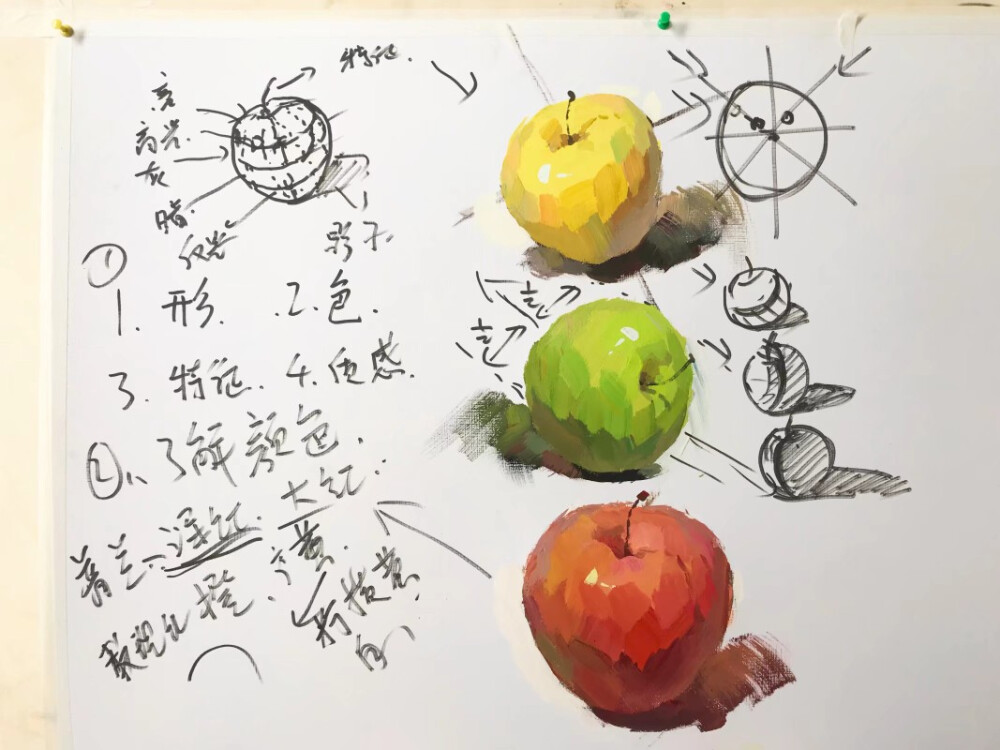 特征.
亮
高光.
灰
暗.
反光
影子
①
1. 形. 2. 色.
3. 特征. 4. 质感.
②、了解颜色.
深红. 大红.
橙. 黄.
柠檬黄
白、